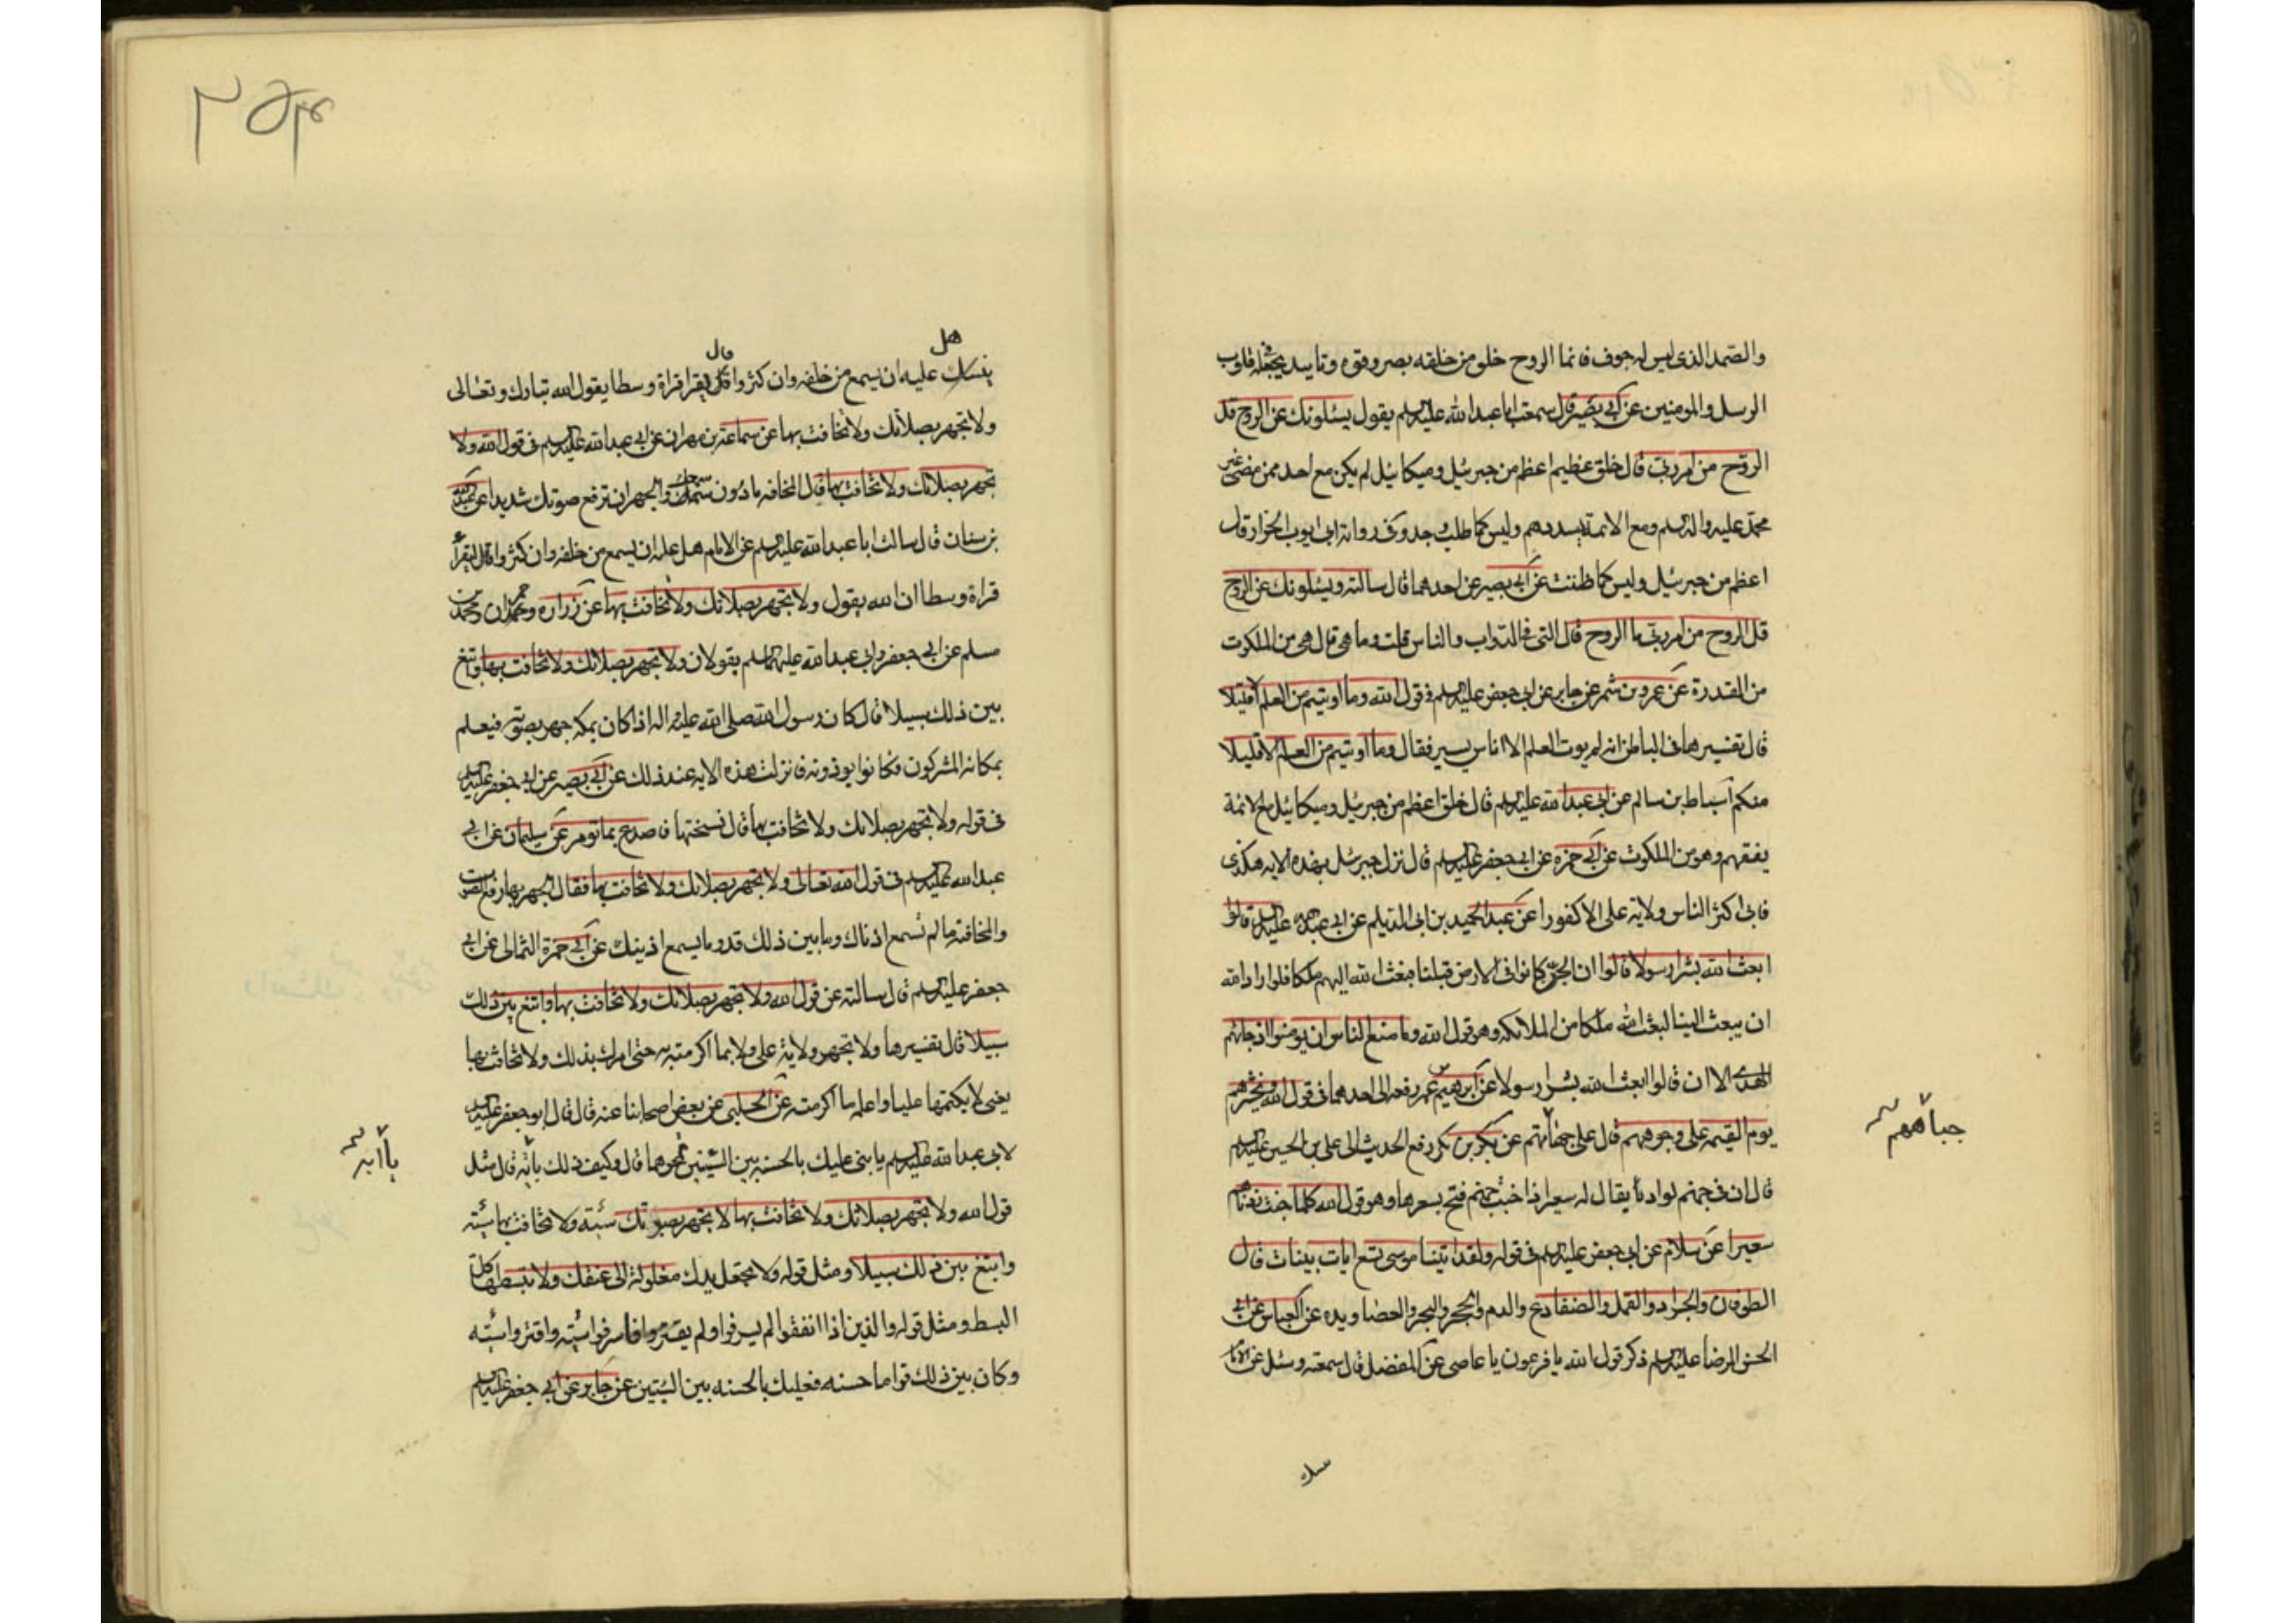 والصمد الذى ليس له جوف فانما الروح خلق من خلقه بصر وقوة وتاييد يجعله فى قلوب
الرسل والمومنين عن ابى بصير قال سمعت ابا عبد الله عليه السلم يقول يسئلونك عن الروح قل
الروح من امر ربى قال خلق عظيم اعظم من جبرئيل وميكائيل لم يكن مع احد ممن مضى غير
محمد عليه واله السلم ومع الائمة يسددهم وليس كما طلب وجد وفى رواية ابى ايوب الخزاز قال
اعظم من جبرئيل وليس كما ظننت عن ابى بصير عن احدهما قال سالته ويسئلونك عن الروح
قل الروح من امر ربى ما الروح قال التى فى الدواب والناس قلت وما هى قال هى من الملكوت
من القدرة عن عمرو بن شمر عن جابر عن ابى جعفر عليه السلم فى قول الله وما اوتيتم من العلم الا قليلا
قال تفسيرها فى الباطن انه لم يوت العلم الا اناس يسير فقال وما اوتيتم من العلم الا قليلا
منكم اسباط بن سالم عن ابى عبد الله عليه السلم قال خلق اعظم من جبرئيل وميكائيل مع الائمة
يفقههم وهو من الملكوت عن ابى حمزه عن ابى جعفر عليه السلم قال نزل جبرئيل بهذه الايه هكذى
فابى اكثر الناس ولاية على الا كفورا عن عبد الحميد بن ابى الديلم عن ابى عبد الله عليه السلم قالوا
ابعث الله بشرا رسولا قالوا ان الجن كانوا فى الارض قبلنا فبعث الله اليهم ملكا فلو اراد الله
ان يبعث الينا لبعث الله ملكا من الملائكه وهو قول الله وما منع الناس ان يومنوا اذ جائهم
الهدى الا ان قالوا ابعث الله بشرا رسولا عن ابرهيم بن عمر رفعه الى احدهما فى قول الله ونحشرهم
يوم القيمه على وجوههم قال على جباههم عن بكر بن بكر رفع الحديث الى على بن الحسين عليه السلم
جباههم
قال ان فى جهنم لواديا يقال له سعير اذا خبت جهنم فتح بسعيرها وهو قول الله كلما خبت زدناهم
سعيرا عن سلام عن ابى جعفر عليه السلم فى قوله ولقد اتينا موسى تسع ايات بينات قال
الطوفان والجراد والقمل والضفادع والدم والحجر والبحر والعصا ويده عن العباس عن ابى
الحسن الرضا عليه السلم ذكر قول الله يا فرعون يا عاصى عن المفضل قال سمعته وسئل عن الامام
هل
قال
عليه ان يسمع من خلفه وان كثروا قال يقرا قراة وسطا يقول الله تبارك وتعالى
ولا تجهر بصلاتك ولا تخافت بها عن سماعة بن مهران عن ابى عبد الله عليه السلم فى قول الله ولا
تجهر بصلاتك ولا تخافت بها قال المخافه ما دون سمعك والجهر ان ترفع صوتك شديدا عن عبد الله
بن سنان قال سالت ابا عبد الله عليه السلم عن الامام هل عليه ان يسمع من خلفه وان كثروا قال ليقرأ
قراة وسطا ان الله يقول ولا تجهر بصلاتك ولا تخافت بها عن زراره وحمران ومحمد بن
مسلم عن ابى جعفر وابى عبد الله عليهما السلم يقولان ولا تجهر بصلاتك ولا تخافت بها وابتغ
بين ذلك سبيلا قال كان رسول الله صلى الله عليه واله اذا كان بمكه جهر بصوته فيعلم
بمكانه المشركون فكانوا يوذونه فانزلت هذه الايه عند ذلك عن ابى بصير عن ابى جعفر عليه السلم
فى قوله ولا تجهر بصلاتك ولا تخافت بها قال نسختها فاصدع بما تومر عن سليمان عن ابى
عبد الله عليه السلم فى قول الله تعالى ولا تجهر بصلاتك ولا تخافت بها فقال الجهر بها رفع الصوت
والمخافته ما لم تسمع اذناك وما بين ذلك قدر ما يسمع اذنيك عن ابى حمزة الثمالى عن ابى
جعفر عليه السلم قال سالته عن قول الله ولا تجهر بصلاتك ولا تخافت بها وابتغ بين ذلك
سبيلا قال تفسيرها ولا تجهر بولاية على ولا بما اكرمته به حتى امرك بذلك ولا تخافت بها
يعنى لا يكتمها عليا واعلمه ما اكرمته عن الحلبى عن بعض اصحابنا عنه قال قال ابو جعفر عليه السلم
لابى عبد الله عليه السلم يا بنى عليك بالحسنه بين السيئتين تمحوهما قال وكيف ذلك يا ابه قال مثل
يا ابه
قول الله ولا تجهر بصلاتك ولا تخافت بها لا تجهر بصوتك سيئه ولا تخافت بها سيئه
وابتغ بين ذلك سبيلا ومثل قوله ولا تجعل يدك مغلولة الى عنقك ولا تبسطها كل
البسط ومثل قوله والذين اذا انفقوا لم يسرفوا ولم يقتروا فاسرفوا سيئه واقتروا سيئه
وكان بين ذلك قواما حسنه فعليك بالحسنه بين السيئتين عن جابر عن ابى جعفر عليه السلم